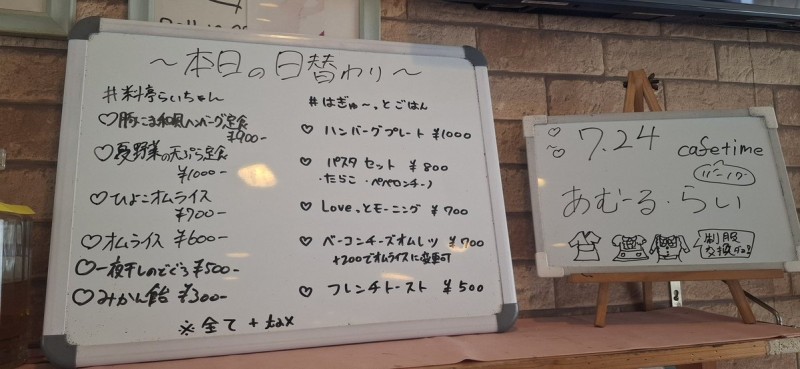 ～本日の日替わり～
#料亭らいちゃん
♡豚こま和風ハンバーグ定食
¥900-
♡夏野菜の天ぷら定食
¥1000-
♡ひよこオムライス
¥700-
♡オムライス ¥600-
♡一夜干しのどぐろ ¥500-
♡みかん飴 ¥300-
※全て + tax
#はぎゅ～っとごはん
♡ ハンバーグプレート ¥1000
♡ パスタセット ¥800
・たらこ ・ペペロンチーノ
♡ Love♡っとモーニング ¥700
♡ ベーコンチーズオムレツ ¥700
+200でオムライスに変更可
♡ フレンチトースト ¥500
7.24
cafetime
あむーる・らい
制服
交換